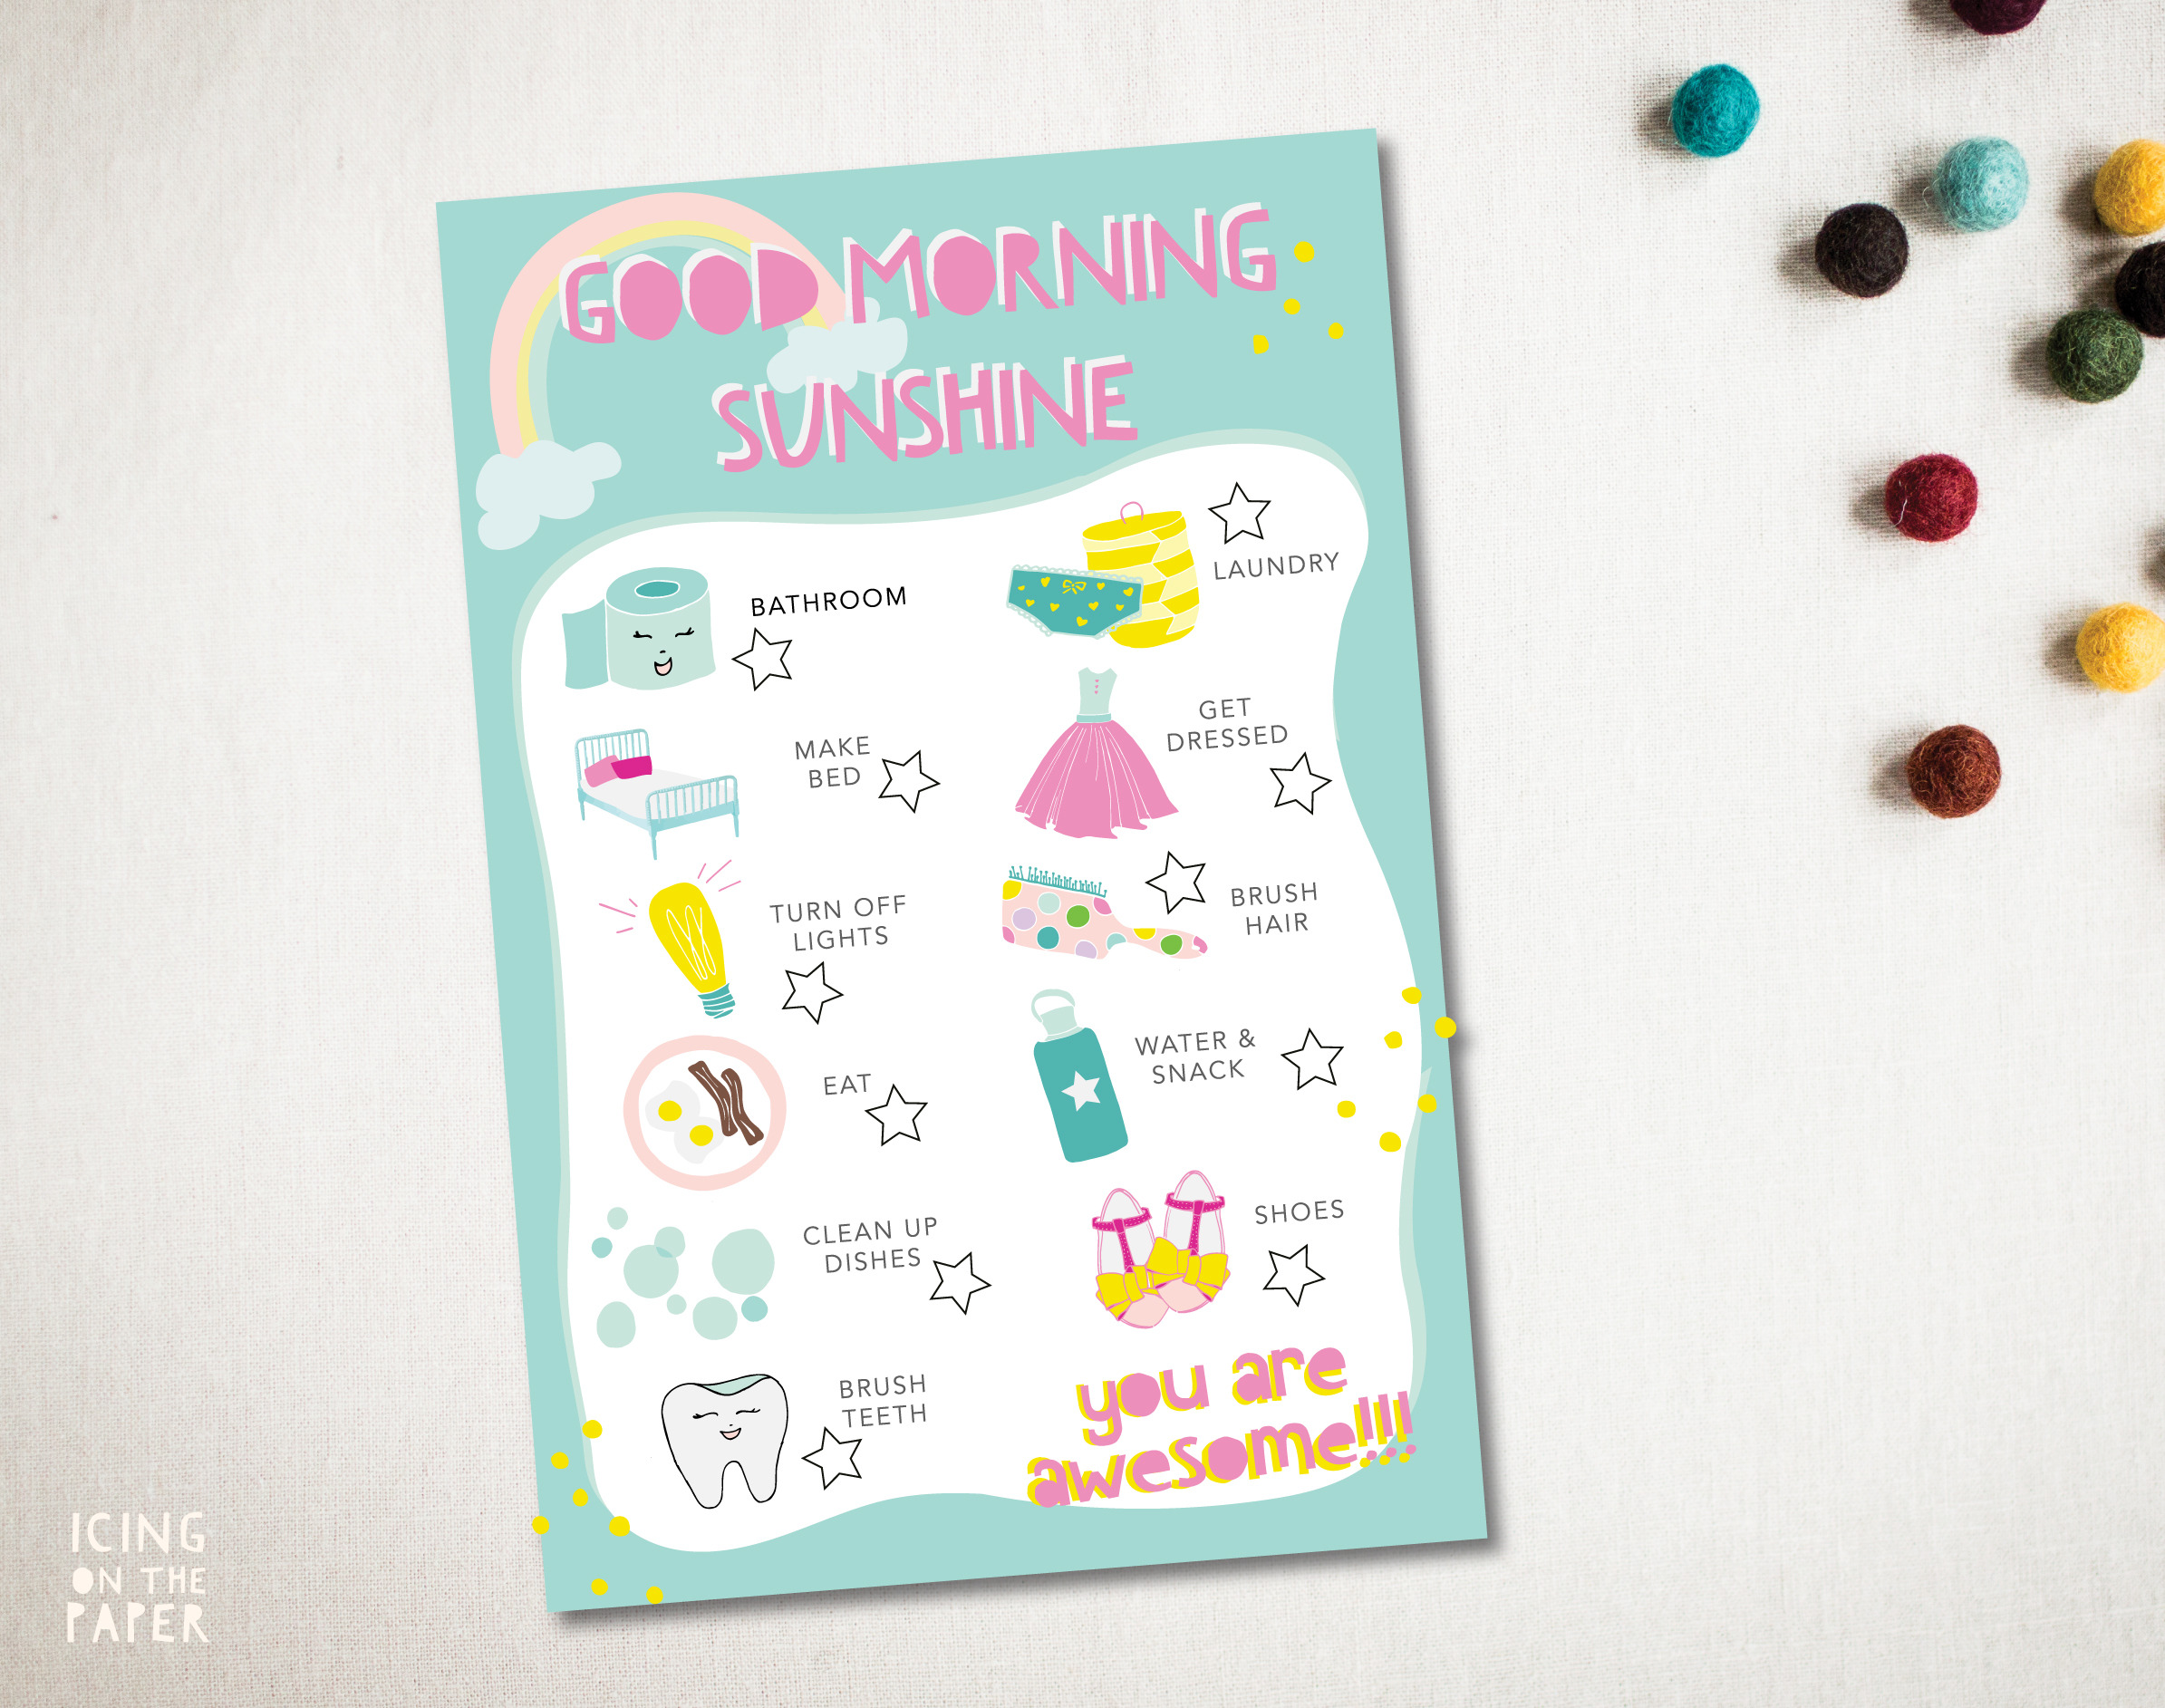 GOOD MORNING
SUNSHINE
BATHROOM
MAKE
BED
TURN OFF
LIGHTS
EAT
CLEAN UP
DISHES
BRUSH
TEETH
LAUNDRY
GET
DRESSED
BRUSH
HAIR
WATER &
SNACK
SHOES
you are
awesome!!!!
ICING
ON THE
PAPER